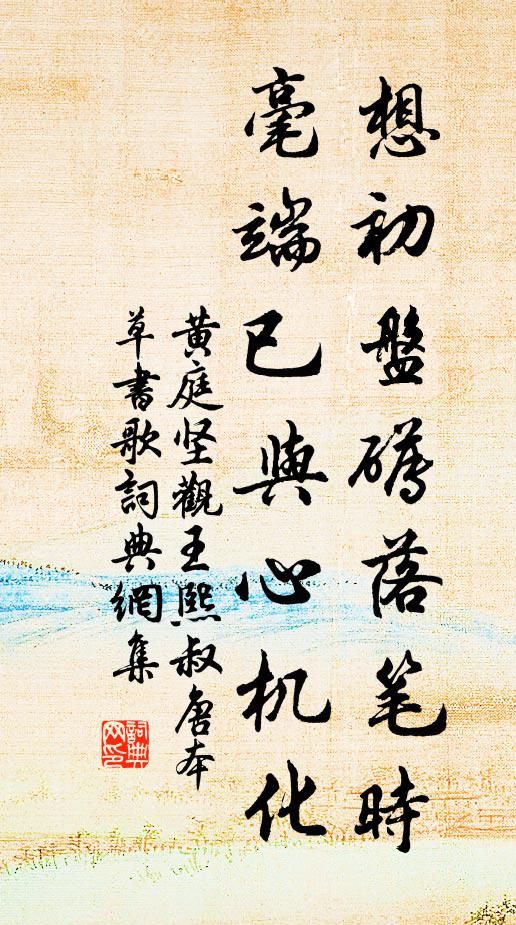 想初盤礴落笔時
毫端已與心机化
黄庭坚觀王熙叔唐本
草書歌詞典網集
詞典
网印